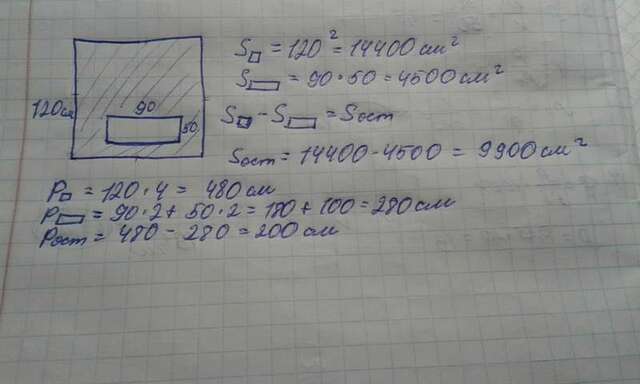 S□ = 120² = 14400 см²
S▭ = 90 · 50 = 4500 см²
120см
90
50
S□ - S▭ = Sост
Sост = 14400 - 4500 = 9900 см²
P□ = 120 · 4 = 480 см
P▭ = 90 · 2 + 50 · 2 = 180 + 100 = 280 см
Pост = 480 - 280 = 200 см